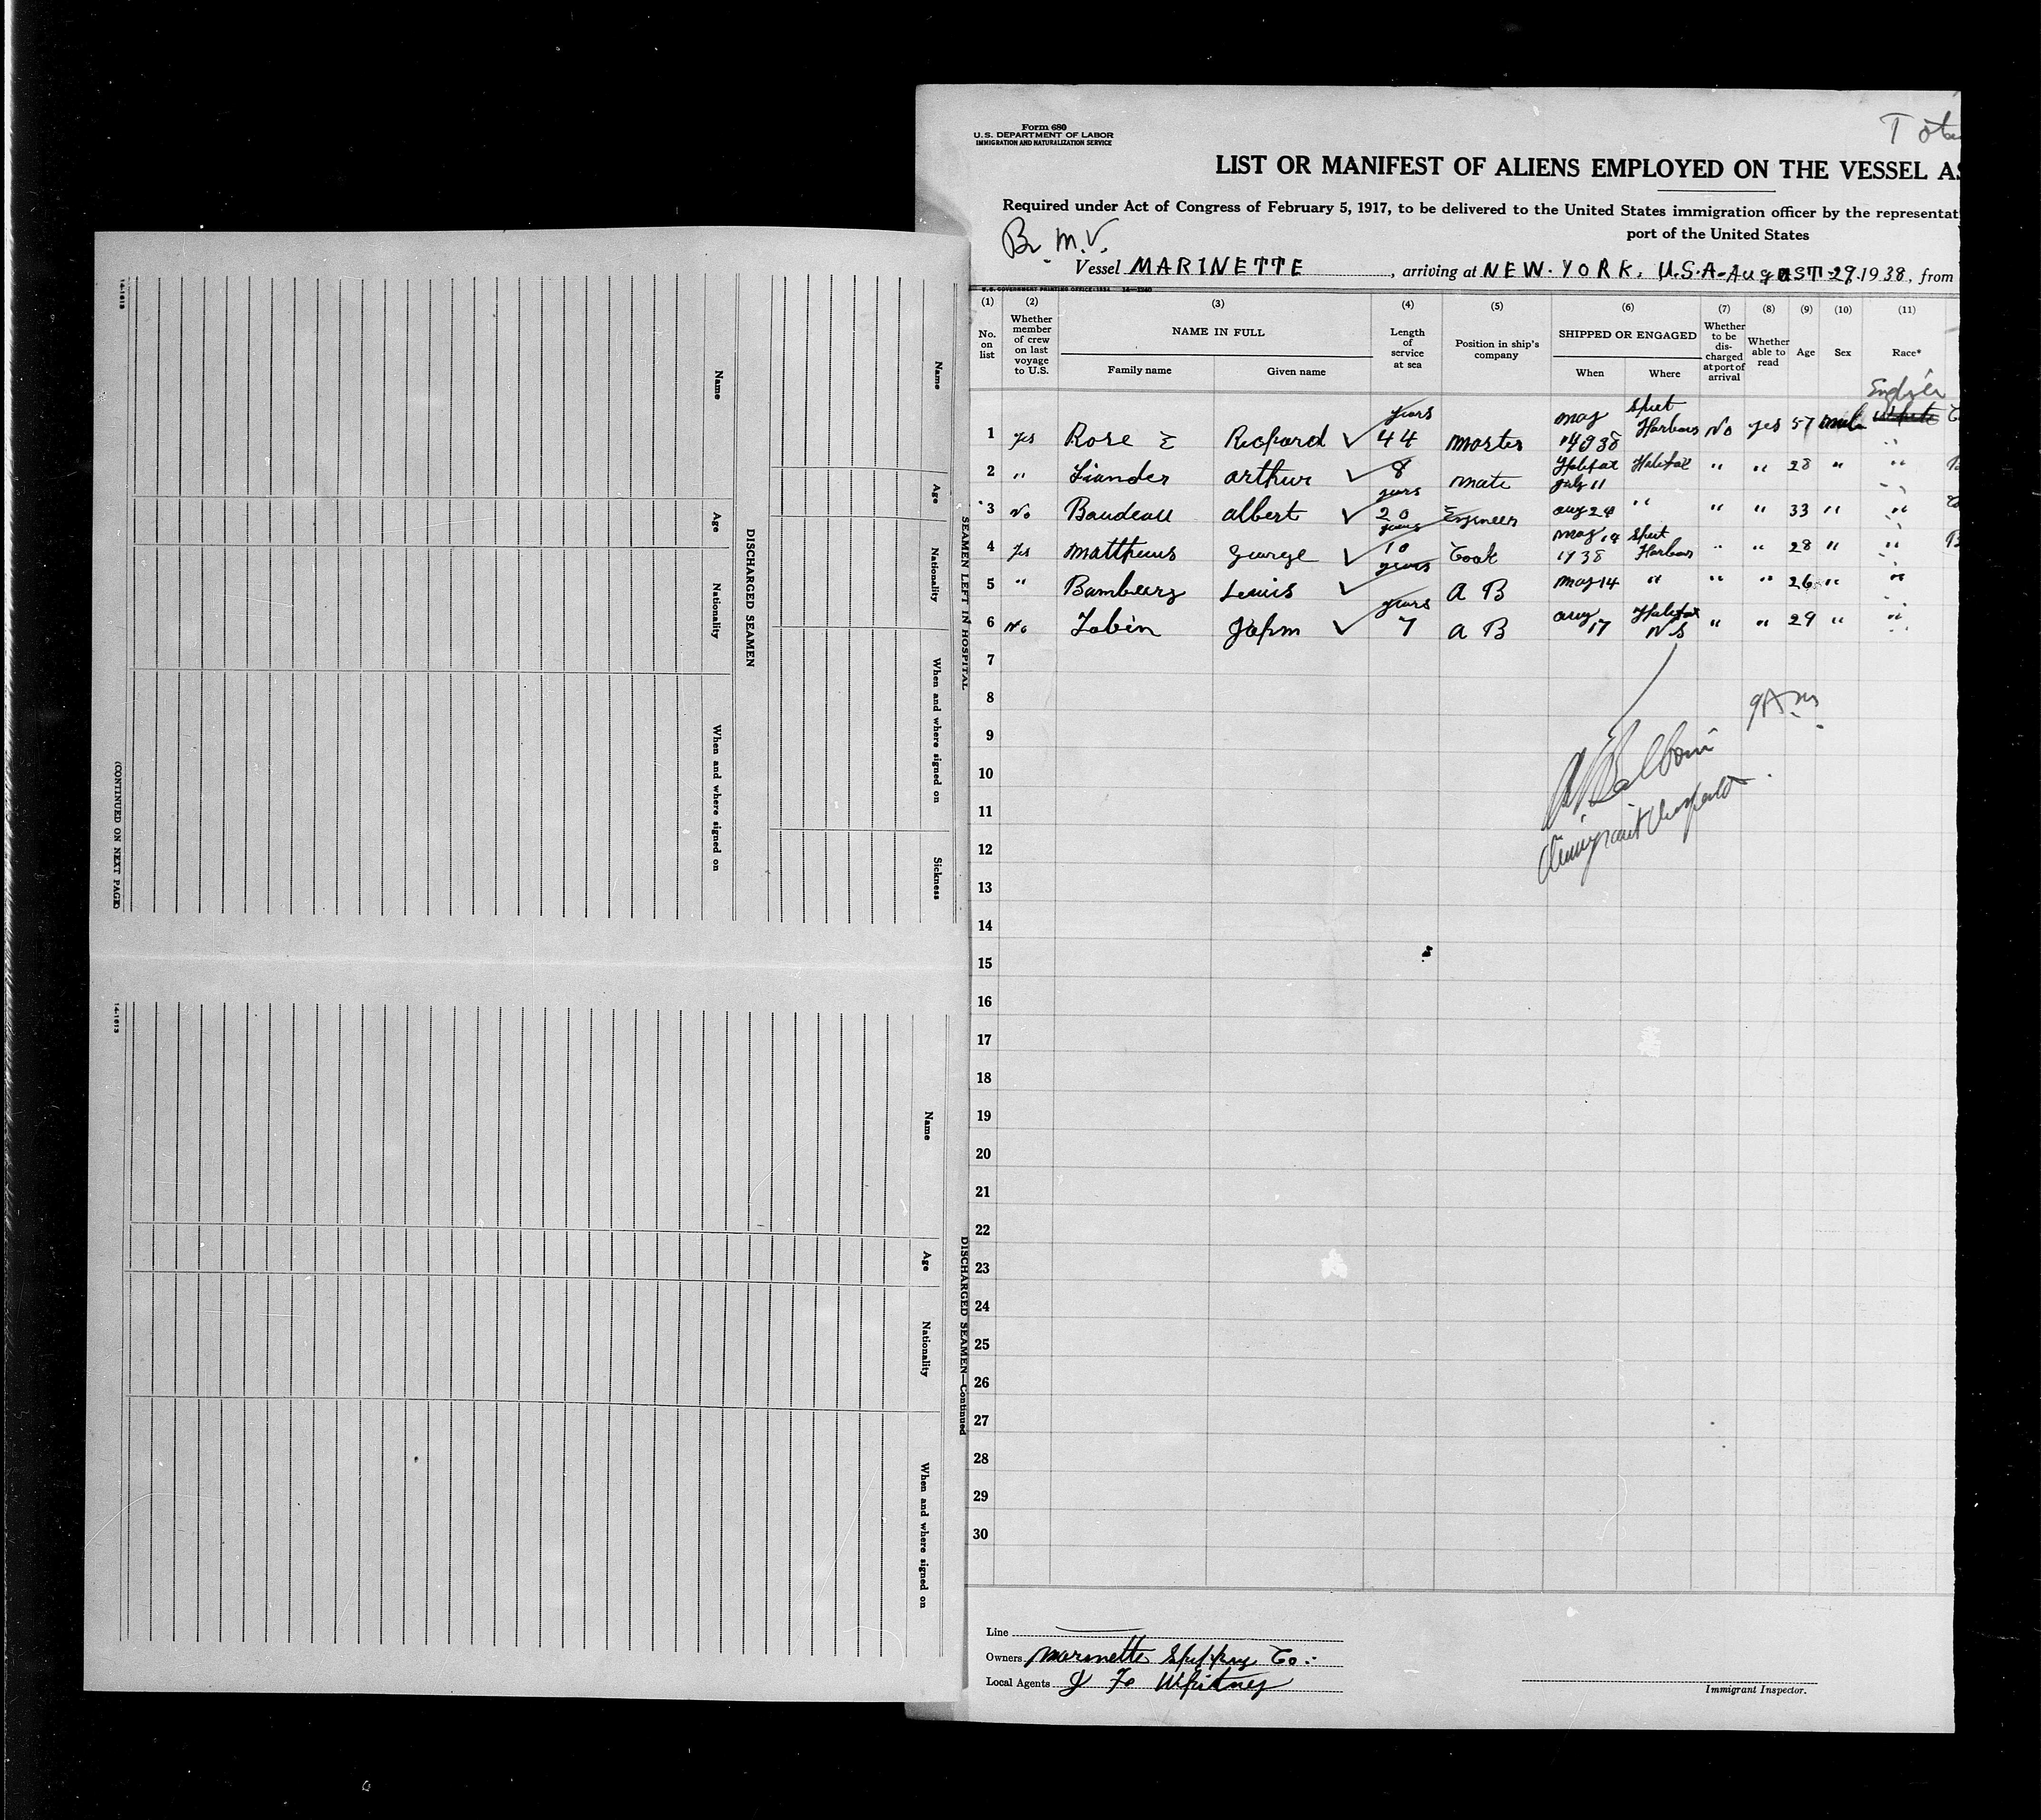 14-1613
Name
Age
Nationality
When and where signed on
Sickness
SEAMEN LEFT IN HOSPITAL
DISCHARGED SEAMEN
Name
Age
Nationality
When and where signed on
(CONTINUED ON NEXT PAGE)
14-1613
DISCHARGED SEAMEN—Continued
Name
Age
Nationality
When and where signed on
Form 680
U. S. DEPARTMENT OF LABOR
IMMIGRATION AND NATURALIZATION SERVICE
LIST OR MANIFEST OF ALIENS EMPLOYED ON THE VESSEL AS
Required under Act of Congress of February 5, 1917, to be delivered to the United States immigration officer by the representat
port of the United States
Br. M.V.
Vessel MARINETTE, arriving at NEW. YORK. U.S.A-AugUST-29.1938, from
(1) (2) (3) (4) (5) (6) (7) (8) (9) (10) (11)
No. on list
Whether member of crew on last voyage to U.S.
NAME IN FULL
Family name
Given name
Length of service at sea
Position in ship's company
SHIPPED OR ENGAGED
When
Where
Whether to be discharged at port of arrival
Whether able to read
Age
Sex
Race*
1 yes Rose E Richard ✓ 44 years master may 14 1938 Spit Harbour No yes 57 male White
2 " Arthur ✓ 8 mate Halifax July 11 Halifax " " 28 " "
3 No Boudeau Albert ✓ years 20 Engineer Aug 24 " " " 33 " "
4 yes Matthews George ✓ years 10 Cook may 14 1938 Spit Harbour " " 28 " "
5 " Lewis ✓ years A B may 14 " " " 26 " "
6 No Tobin John ✓ years 7 A B Aug 17 Halifax NS " " 29 " "
7
8
9
10
11
12
13
14
15
16
17
18
19
20
21
22
23
24
25
26
27
28
29
30
9 A m.
Line
Owners Marinette Shipping Co.
Local Agents J F Whitney
Immigrant Inspector.